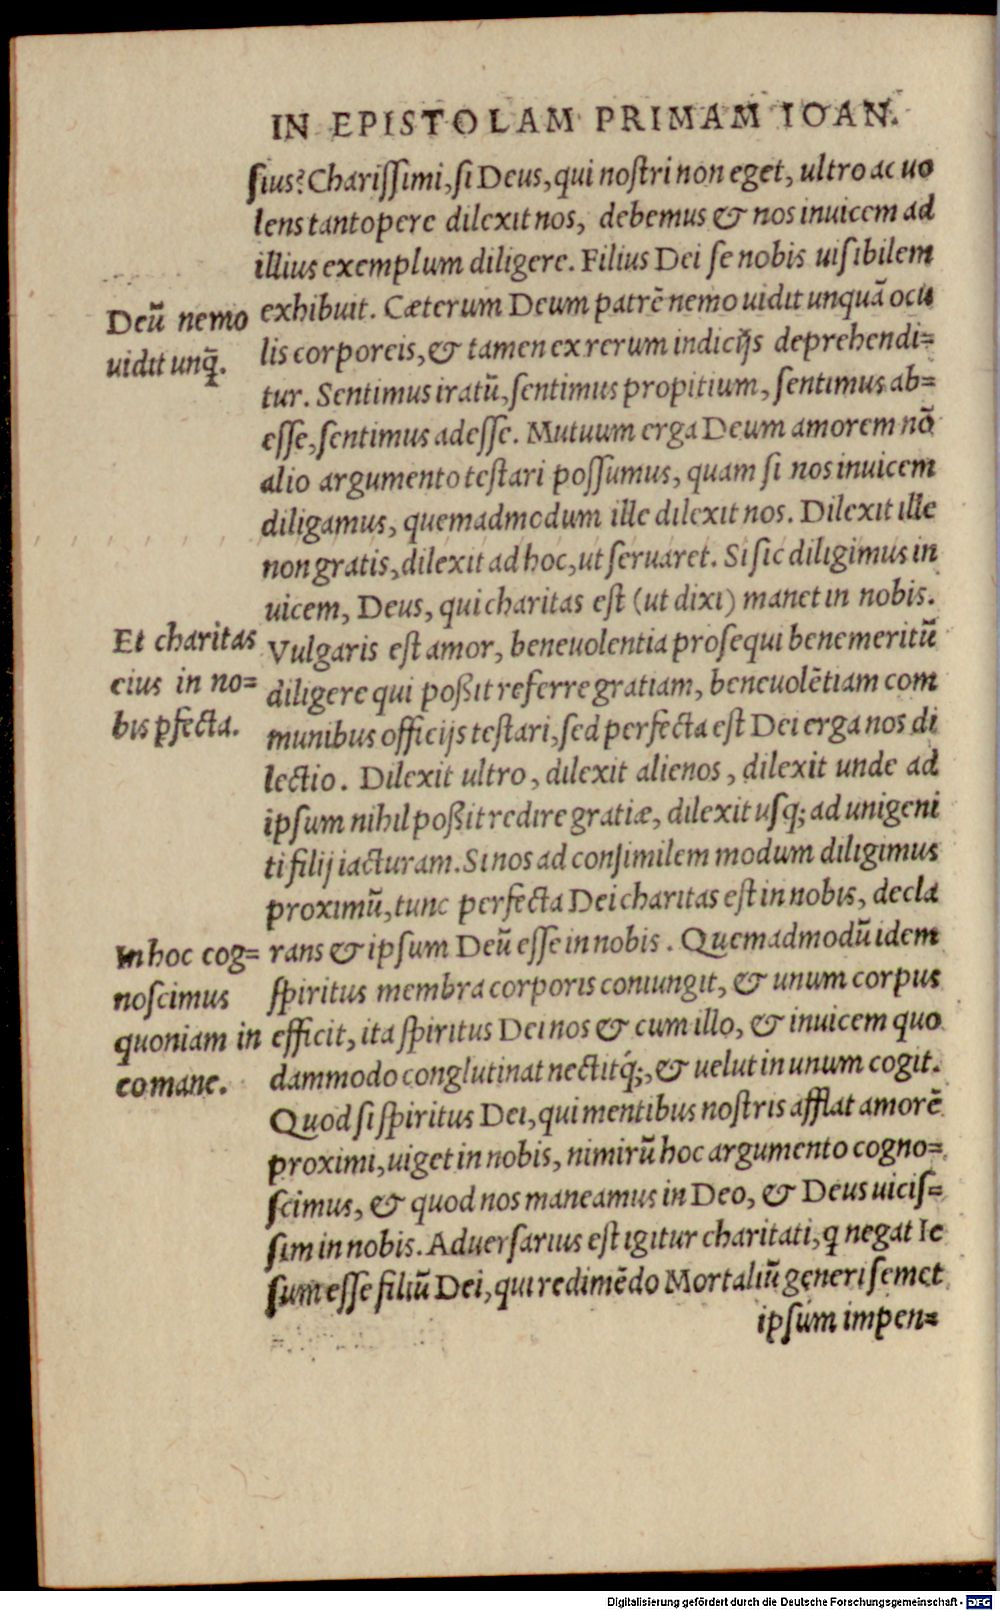 IN EPISTOLAM PRIMAM IOAN.
ſius? Chariſſimi, ſi Deus, qui noſtri non eget, ultro ac uo
lens tantopere dilexit nos, debemus & nos inuicem ad
illius exemplum diligere. Filius Dei ſe nobis uiſibilem
exhibuit. Cæterum Deum patrē nemo uidit unquā ocu
lis corporeis, & tamen ex rerum indicijs deprehendi=
tur. Sentimus iratū, ſentimus propitium, ſentimus ab=
eſſe, ſentimus adeſſe. Mutuum erga Deum amorem nō
alio argumento teſtari poſſumus, quam ſi nos inuicem
diligamus, quemadmodum ille dilexit nos. Dilexit ille
non gratis, dilexit ad hoc, ut ſeruaret. Si ſic diligimus in
uicem, Deus, qui charitas eſt (ut dixi) manet in nobis.
Vulgaris eſt amor, beneuolentia proſequi benemeritū
diligere qui poßit referre gratiam, beneuolētiam com
munibus officijs teſtari, ſed perfecta eſt Dei erga nos di
lectio. Dilexit ultro, dilexit alienos, dilexit unde ad
ipſum nihil poßit redire gratiæ, dilexit uſq; ad unigeni
ti filij iacturam. Si nos ad conſimilem modum diligimus
proximū, tunc perfecta Dei charitas eſt in nobis, decla
rans & ipſum Deū eſſe in nobis. Quemadmodū idem
ſpiritus membra corporis coniungit, & unum corpus
efficit, ita ſpiritus Dei nos & cum illo, & inuicem quo
dammodo conglutinat nectitq́;, & uelut in unum cogit.
Quod ſi ſpiritus Dei, qui mentibus noſtris afflat amorē
proximi, uiget in nobis, nimirū hoc argumento cogno=
ſcimus, & quod nos maneamus in Deo, & Deus uiciſ=
ſim in nobis. Aduerſarius eſt igitur charitati, q negat Ie
ſum eſſe filiū Dei, qui redimēdo Mortaliū generi ſemet
ipſum impen=
Deū nemo
uidit unq̄.
Et charitas
eius in no=
bis ꝑfecta.
In hoc cog=
noſcimus
quoniam in
eo mane.
Digitalisierung gefördert durch die Deutsche Forschungsgemeinschaft - DFG